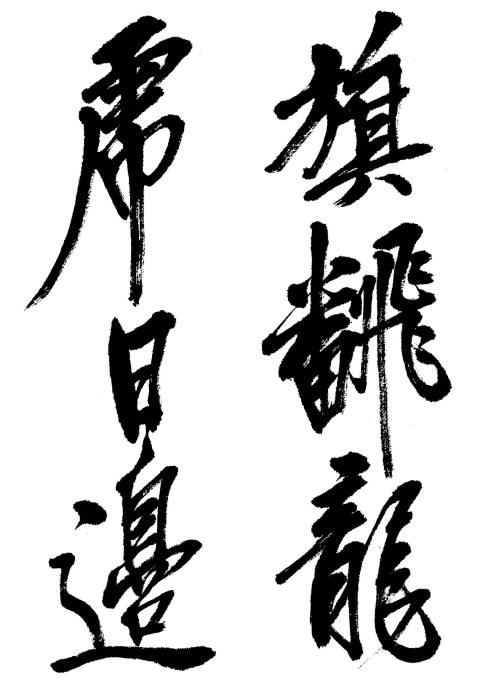 旗飜龍
虎日邊